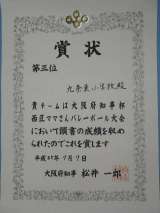 賞状
第三位
九条東小学校殿
貴チームは大阪府知事杯
西区ママさんバレーボール大会
において頭書の成績を収め
られたのでこれを賞します
平成 年7月7日
大阪府知事 松井一郎